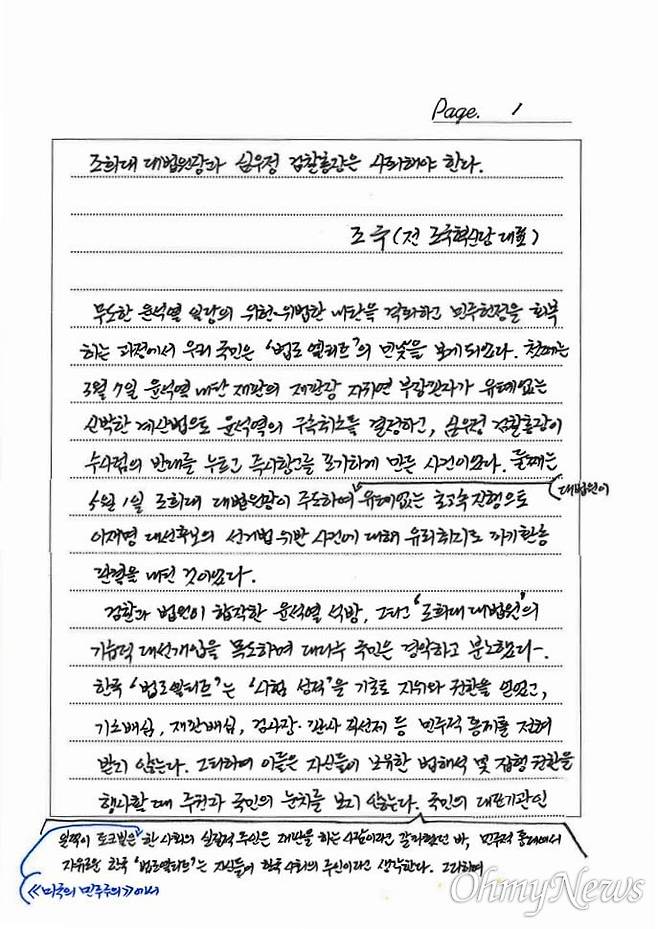 Page. 1
조희대 대법원장과 심우정 검찰총장은 사퇴해야 한다.
조국 (전 조국혁신당 대표)
무도한 윤석열 일당의 위헌·위법한 내란을 격퇴하고 민주헌정을 회복
하는 과정에서 우리 국민은 '법조 엘리트'의 민낯을 보게 되었다. 첫째는
3월 7일 윤석열 내란 재판의 재판장 지귀연 부장판사가 유례없는
신박한 계산법으로 윤석열의 구속취소를 결정하고, 심우정 검찰총장이
수사팀의 반대를 누르고 즉시항고를 포기하게 만든 사건이었다. 둘째는
5월 1일 조희대 대법원장이 주도하여 유례없는 초고속 진행으로
대법원이
이재명 대선후보의 선거법 위반 사건에 대해 유죄취지로 파기환송
판결을 내린 것이었다.
검찰과 법원이 합작한 윤석열 석방, 그리고 '조희대 대법원'의
기습적 대선개입을 목도하며 대다수 국민은 경악하고 분노했다.
한국 '법조엘리트'는 '시험 성적'을 기초로 지위와 권한을 얻었고,
기소배심, 재판배심, 검사장·판사 직선제 등 민주적 통제를 전혀
받지 않는다. 그리하여 이들은 자신들이 보유한 법해석 및 집행 권한을
행사할 때 주권과 국민의 눈치를 보지 않는다. 국민의 대표기관인
일찍이 토크빌은 한 사회의 실질적 주인은 재판을 하는 사람이라고 갈파했던 바, 민주적 통제에서
자유로운 한국 '법조엘리트'는 자신들이 한국 사회의 주인이라고 생각한다. 그리하여
《미국의 민주주의》에서
OhmyNews